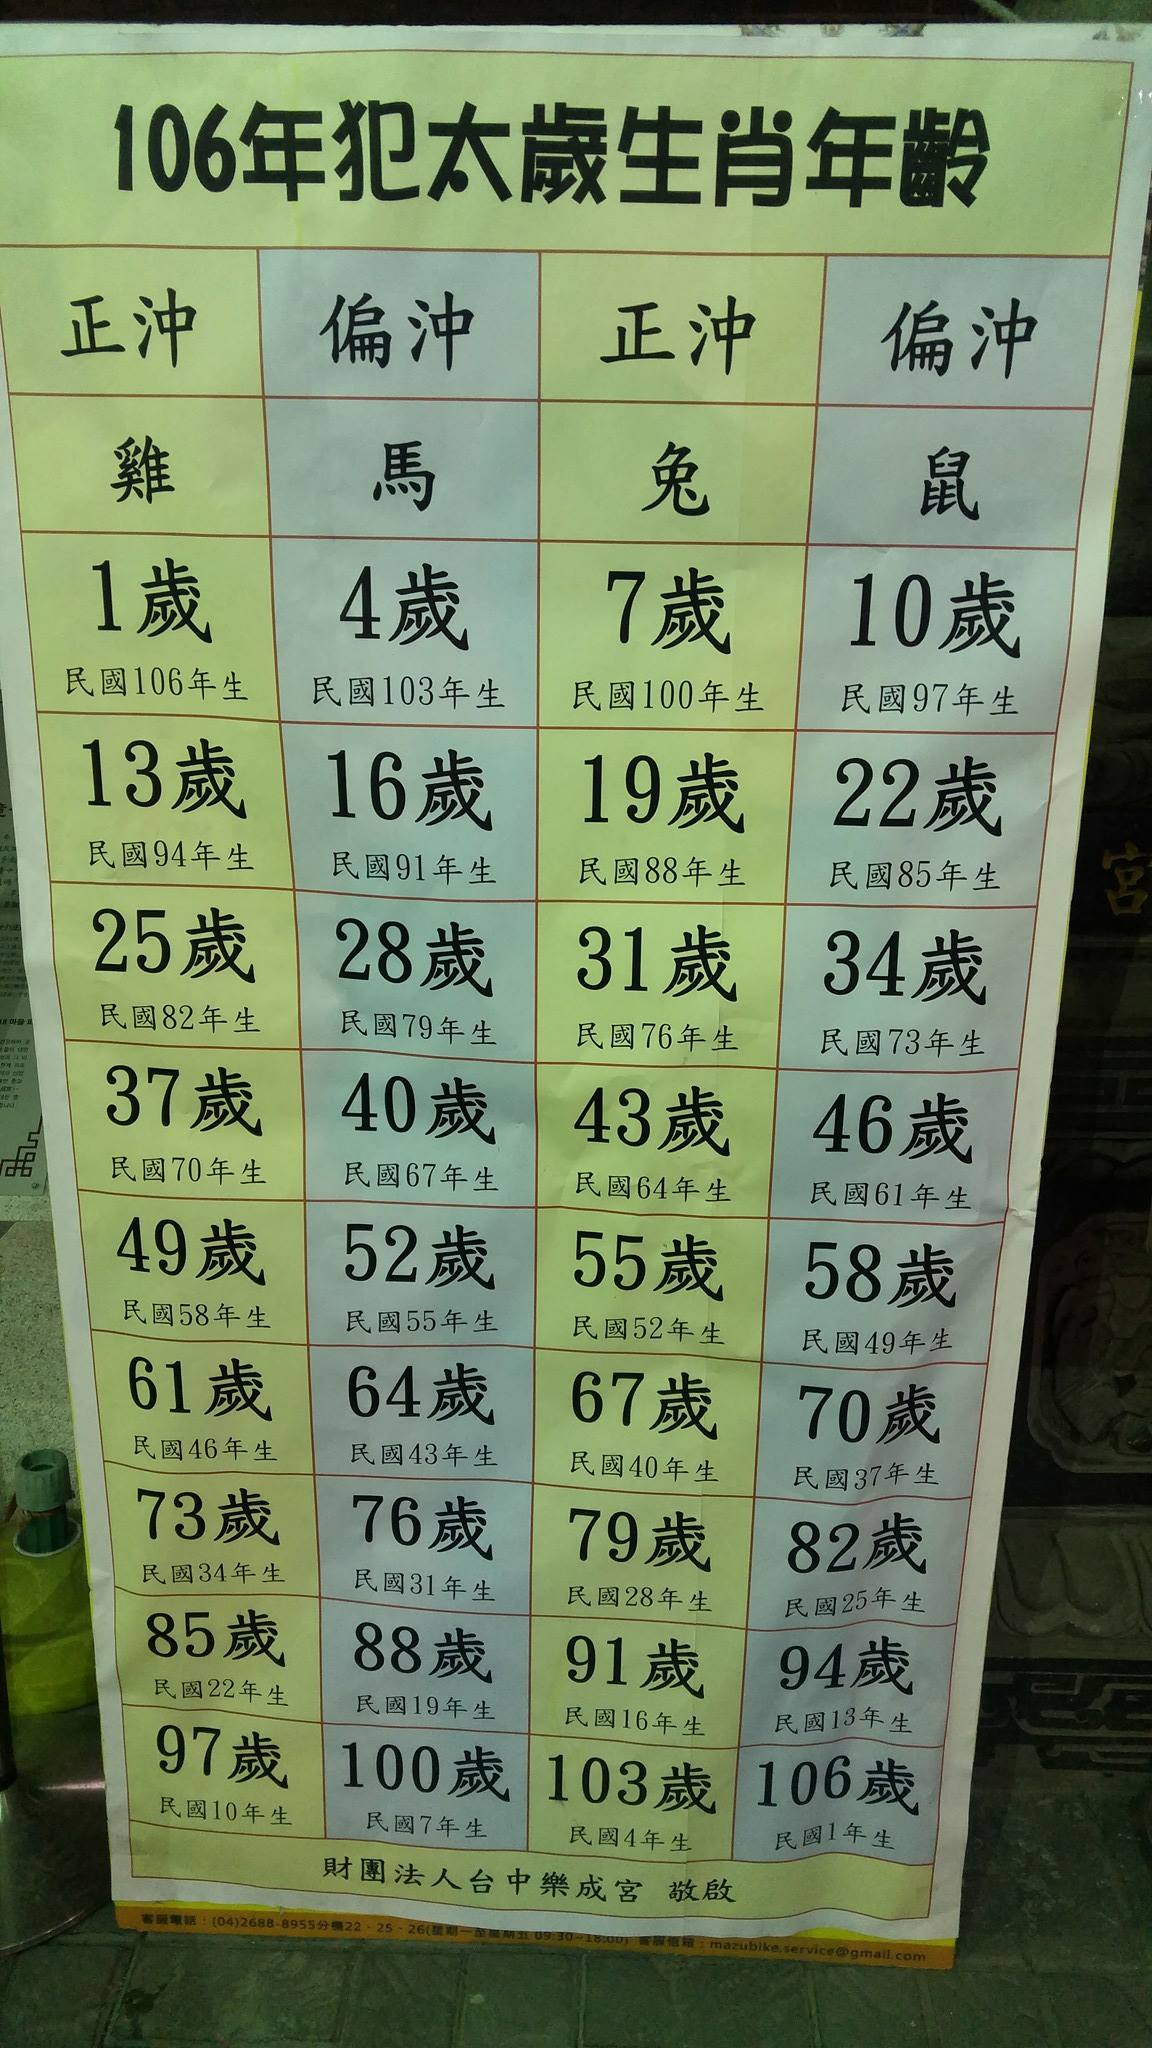 106年犯太歲生肖年齡
正沖 偏沖 正沖 偏沖
雞 馬 兔 鼠
1歲 4歲 7歲 10歲
民國106年生 民國103年生 民國100年生 民國97年生
13歲 16歲 19歲 22歲
民國94年生 民國91年生 民國88年生 民國85年生
25歲 28歲 31歲 34歲
民國82年生 民國79年生 民國76年生 民國73年生
37歲 40歲 43歲 46歲
民國70年生 民國67年生 民國64年生 民國61年生
49歲 52歲 55歲 58歲
民國58年生 民國55年生 民國52年生 民國49年生
61歲 64歲 67歲 70歲
民國46年生 民國43年生 民國40年生 民國37年生
73歲 76歲 79歲 82歲
民國34年生 民國31年生 民國28年生 民國25年生
85歲 88歲 91歲 94歲
民國22年生 民國19年生 民國16年生 民國13年生
97歲 100歲 103歲 106歲
民國10年生 民國7年生 民國4年生 民國1年生
財團法人台中樂成宮 敬啟
客服電話：(04)2688-8955分機22、25、26(星期一至星期五 09:30~18:00) 客服信箱：mazubike.service@gmail.com
宮